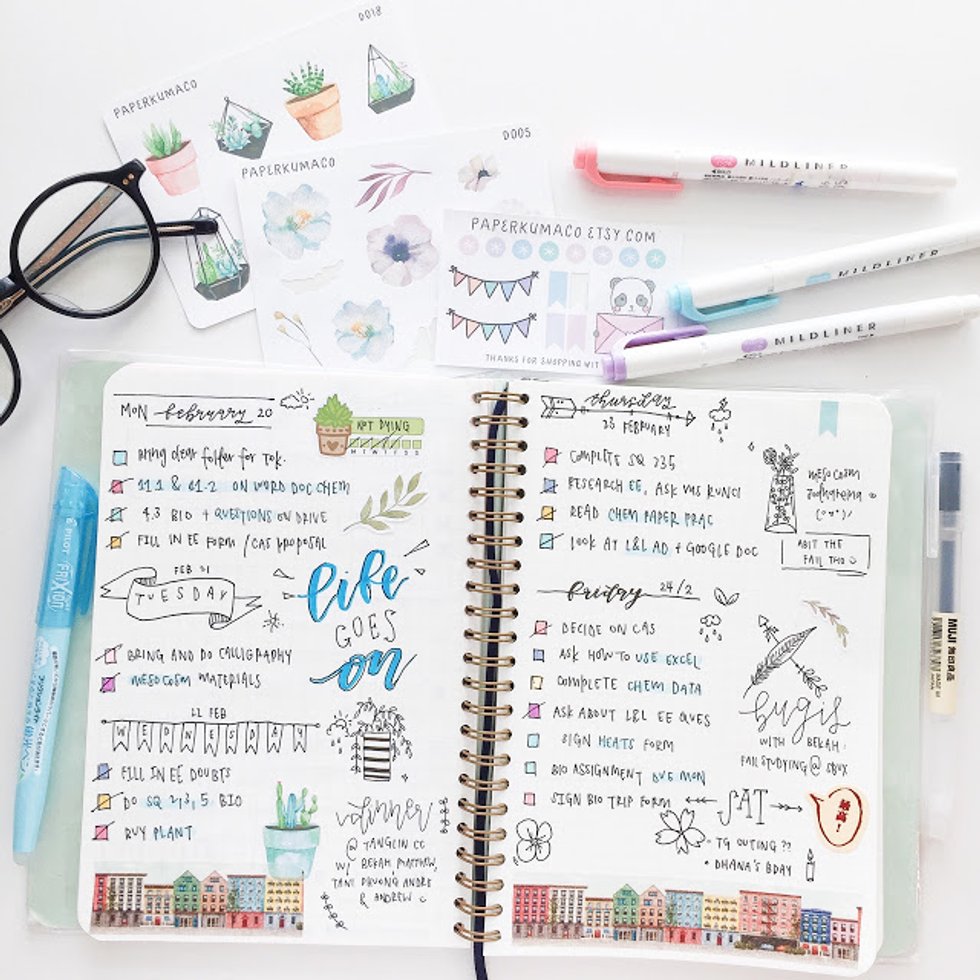 D018
PAPERKUMACO
D005
PAPERKUMACO
PAPERKUMACO.ETSY.COM
THANKS FOR SHOPPING WIT
MILDLINER
MILDLINER
MILDLINER
MON february 20
NOT DYING
M T W T F S S
bring clear folder for TOK.
11.1 & 11.2 ON WORD DOC CHEM
4.3 BIO + QUESTIONS ON DRIVE
FILL IN EE FORM / CAS PROPOSAL
FEB 21
TUESDAY
life
GOES
on
BRING AND DO CALLIGRAPHY
MESOCOSM MATERIALS
22 FEB
WEDNESDAY
FILL IN EE DOUBTS
DO SQ 2, 3, 5 BIO
BUY PLANT
volunner
@ TANGLIN CC
W/ BEKAH MATTHEW,
TANI PHUONG ANDRE
& ANDREW
thursday
23 FEBRUARY
COMPLETE SQ 235
RESEARCH EE, ASK MS KUNCI
READ CHEM PAPER PRAC
LOOK AT L&L AD + GOOGLE DOC
MESOCOSM
ABIT THE
FAIL THO
friday 24/2
DECIDE ON CAS
ASK HOW TO USE EXCEL
COMPLETE CHEM DATA
ASK ABOUT L&L EE QUES
SIGN HEATS FORM
BIO ASSIGNMENT DUE MON
SIGN BIO TRIP FORM
bugis
WITH BEKAH.
FAIL STUDYING @ SBUX
SAT
TG OUTING ??
DHANA'S BDAY
最高!
PILOT
FRIXION
MUJI 無印良品